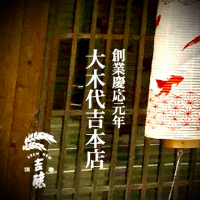 創業慶応元年
大木代吉本店